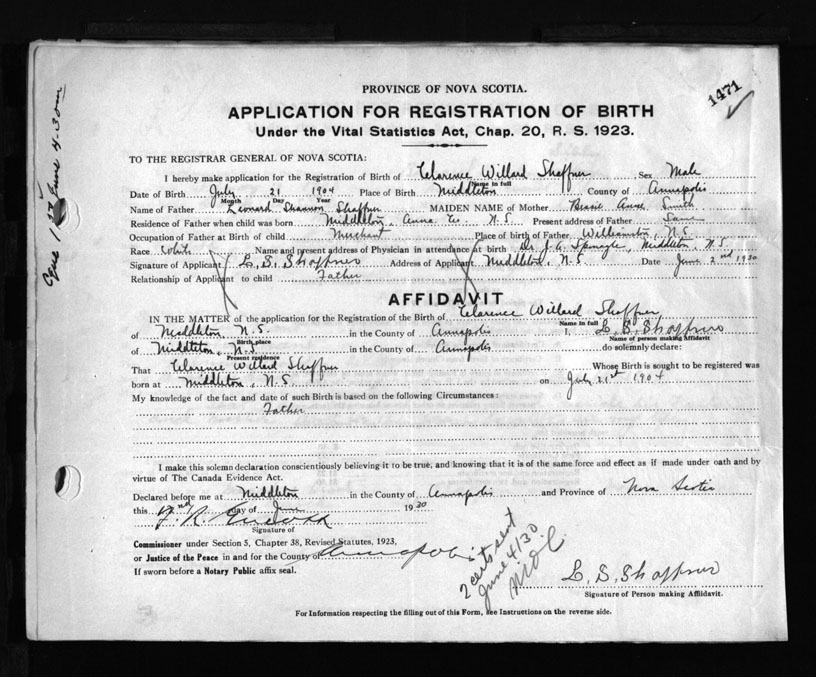 1471
PROVINCE OF NOVA SCOTIA.
APPLICATION FOR REGISTRATION OF BIRTH
Under the Vital Statistics Act, Chap. 20, R. S. 1923.
TO THE REGISTRAR GENERAL OF NOVA SCOTIA:
I hereby make application for the Registration of Birth of Clarence Willard Shaffner Sex Male
Name in full
Date of Birth July 21 1904 Place of Birth Middleton County of Annapolis
Month Day Year
Name of Father Leonard Shannon Shaffner MAIDEN NAME of Mother Bessie Annie Smith
Residence of Father when child was born Middleton, Anna Co. N.S. Present address of Father Same
Occupation of Father at Birth of child Merchant Place of birth of Father Williamston, N.S.
Race White Name and present address of Physician in attendance at birth Dr. J. A. Sponagle, Middleton, N.S.
Signature of Applicant L. S. Shaffner Address of Applicant Middleton, N.S. Date June 2nd 1930
Relationship of Applicant to child Father
AFFIDAVIT
IN THE MATTER of the application for the Registration of the Birth of Clarence Willard Shaffner,
Name in full
of Middleton N.S. in the County of Annapolis I, L. S. Shaffner
Birth place
Name of person making Affidavit
of Middleton, N.S. in the County of Annapolis do solemnly declare:
Present residence
That Clarence Willard Shaffner Whose Birth is sought to be registered was
born at Middleton, N.S on July 21st 1904
My knowledge of the fact and date of such Birth is based on the following Circumstances:
Father
I make this solemn declaration conscientiously believing it to be true, and knowing that it is of the same force and effect as if made under oath and by
virtue of The Canada Evidence Act.
Declared before me at Middleton in the County of Annapolis and Province of Nova Scotia
this 2nd day of June 1930
Signature of
Commissioner under Section 5, Chapter 38, Revised Statutes, 1923,
or Justice of the Peace in and for the County of Annapolis
If sworn before a Notary Public affix seal.
2 certs sent
June 4/30
L. S. Shaffner
Signature of Person making Affidavit.
For Information respecting the filling out of this Form, see Instructions on the reverse side.